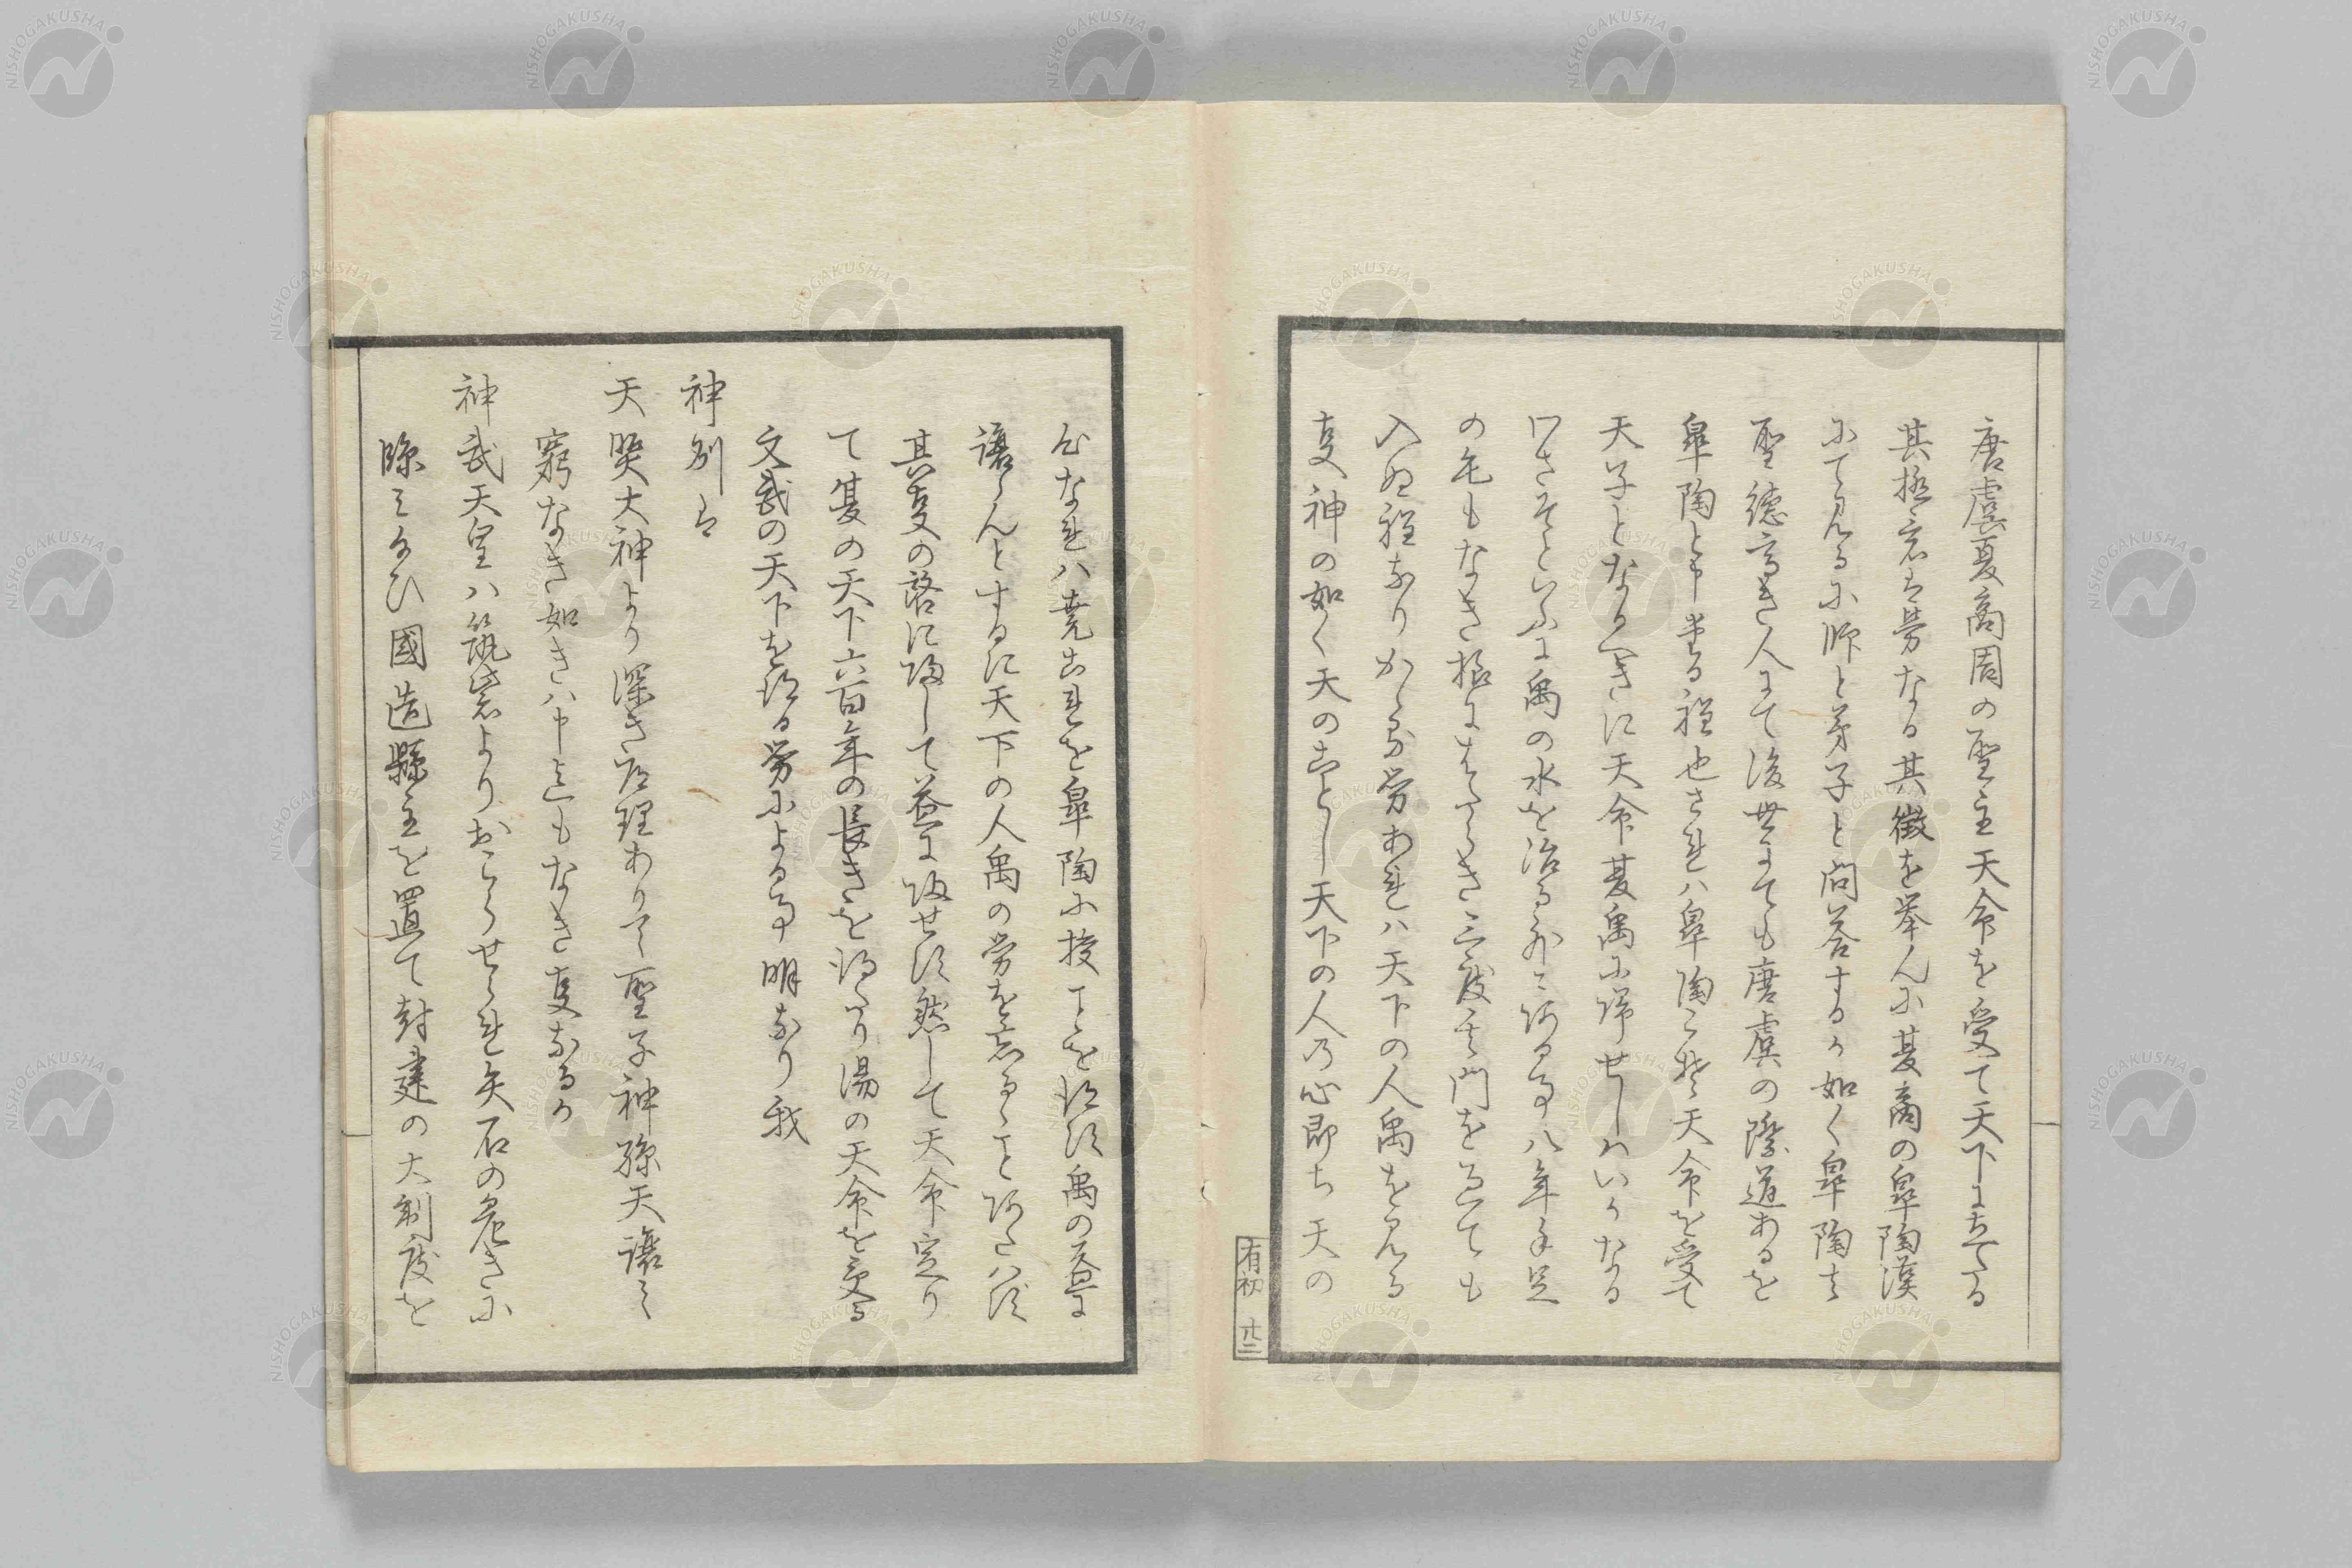 唐虞夏商周の聖主天命を受て天下にたてる
其極意は労なる其徴を挙んに夏商の皐陶漢
にて見るに師と弟子と問答するか如く皐陶は
聖徳高き人にて後世までも唐虞の際道あるを
皐陶と申奉る程也されハ皐陶こそ天命を受て
天子となるへきに天命夏禹に帰せしハいかなる
わさそといふに禹の水を治る外に在る事八年手足
の毛もなき極にはたらき三度其門を過ても
入ぬ程なりかゝる労あれハ天下の人禹を見る
事神の如く天のことし天下の人乃心即ち天の
心なれハ堯これを皐陶に授ことを得す禹の益に
譲らんとするに天下の人禹の労を忘るゝこと能はす
其事の啓に帰して益に帰せす然して天命定り
て夏の天下六百年の長きを得たり湯の天命を受る
文武の天下を得る労による事明なり我
神別は
天照大神より深き道理ありて聖子神孫天譲
窮なき如きハ申迄もなき事なるか
神武天皇ハ筑紫よりおこらせられ矢石の危きに
臨ミ給ひ國造縣主を置て封建の大制度を
有初 廿二
NISHOGAKUSHA